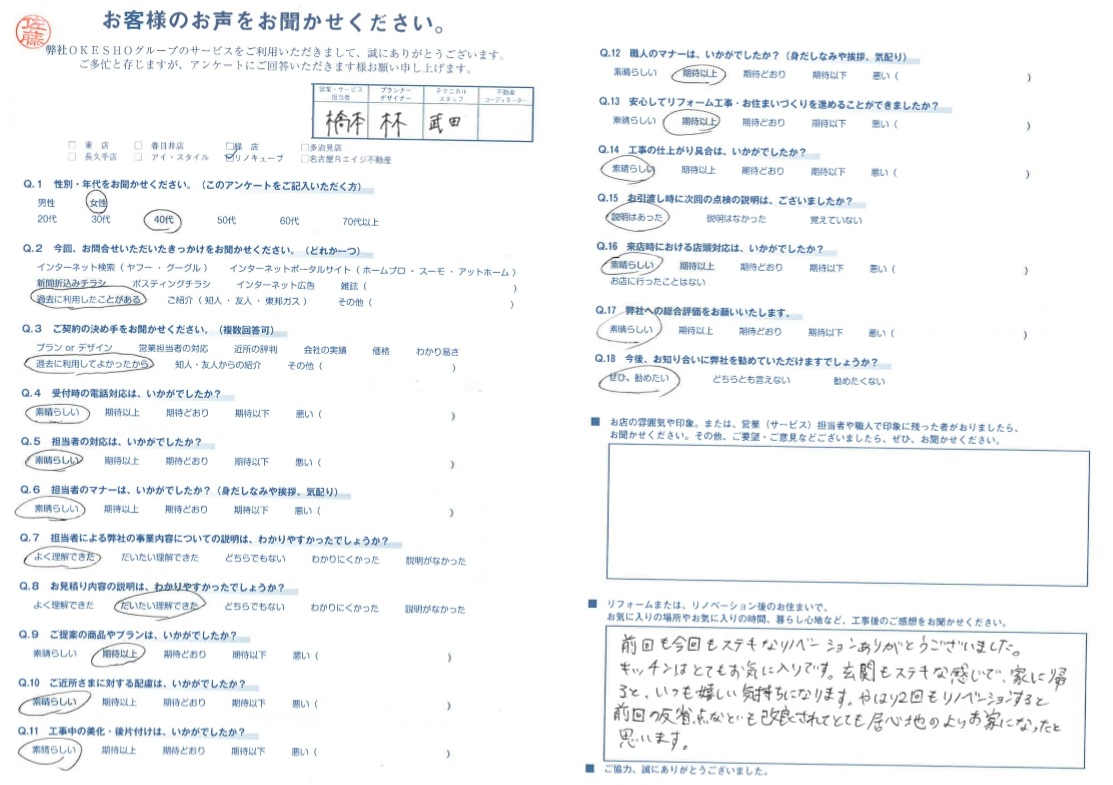 佐藤
お客様のお声をお聞かせください。
弊社OKESHOグループのサービスをご利用いただきまして、誠にありがとうございます。
ご多忙と存じますが、アンケートにご回答いただきます様お願い申し上げます。
営業・サービス担当者 プランナーデザイナー テクニカルスタッフ 不動産コーディネーター
橋本 林 武田
□ 東 店 □ 春日井店 □緑 店 □多治見店
□ 長久手店 □ アイ・スタイル ☑リノキューブ □名古屋Rエイジ不動産
Q.1 性別・年代をお聞かせください。（このアンケートをご記入いただく方）
男性 女性
20代 30代 40代 50代 60代 70代以上
Q.2 今回、お問合せいただいたきっかけをお聞かせください。（どれか一つ）
インターネット検索（ ヤフー ・ グーグル ） インターネットポータルサイト（ ホームプロ ・ スーモ ・ アットホーム ）
新聞折込みチラシ ポスティングチラシ インターネット広告 雑誌（ ）
過去に利用したことがある ご紹介（ 知人 ・ 友人 ・ 東邦ガス ） その他（ ）
Q.3 ご契約の決め手をお聞かせください。（複数回答可）
プラン or デザイン 営業担当者の対応 近所の評判 会社の実績 価格 わかり易さ
過去に利用してよかったから 知人・友人からの紹介 その他（ ）
Q.4 受付時の電話対応は、いかがでしたか？
素晴らしい 期待以上 期待どおり 期待以下 悪い（ ）
Q.5 担当者の対応は、いかがでしたか？
素晴らしい 期待以上 期待どおり 期待以下 悪い（ ）
Q.6 担当者のマナーは、いかがでしたか？（身だしなみや挨拶、気配り）
素晴らしい 期待以上 期待どおり 期待以下 悪い（ ）
Q.7 担当者による弊社の事業内容についての説明は、わかりやすかったでしょうか？
よく理解できた だいたい理解できた どちらでもない わかりにくかった 説明がなかった
Q.8 お見積り内容の説明は、わかりやすかったでしょうか？
よく理解できた だいたい理解できた どちらでもない わかりにくかった 説明がなかった
Q.9 ご提案の商品やプランは、いかがでしたか？
素晴らしい 期待以上 期待どおり 期待以下 悪い（ ）
Q.10 ご近所さまに対する配慮は、いかがでしたか？
素晴らしい 期待以上 期待どおり 期待以下 悪い（ ）
Q.11 工事中の美化・後片付けは、いかがでしたか？
素晴らしい 期待以上 期待どおり 期待以下 悪い（ ）
Q.12 職人のマナーは、いかがでしたか？（身だしなみや挨拶、気配り）
素晴らしい 期待以上 期待どおり 期待以下 悪い（ ）
Q.13 安心してリフォーム工事・お住まいづくりを進めることができましたか？
素晴らしい 期待以上 期待どおり 期待以下 悪い（ ）
Q.14 工事の仕上がり具合は、いかがでしたか？
素晴らしい 期待以上 期待どおり 期待以下 悪い（ ）
Q.15 お引渡し時に次回の点検の説明は、ございましたか？
説明はあった 説明はなかった 覚えていない
Q.16 来店時における店頭対応は、いかがでしたか？
素晴らしい 期待以上 期待どおり 期待以下 悪い（ ）
お店に行ったことはない
Q.17 弊社への総合評価をお願いいたします。
素晴らしい 期待以上 期待どおり 期待以下 悪い（ ）
Q.18 今後、お知り合いに弊社を勧めていただけますでしょうか？
ぜひ、勧めたい どちらとも言えない 勧めたくない
■ お店の雰囲気や印象。または、営業（サービス）担当者や職人で印象に残った者がおりましたら、
お聞かせください。その他、ご要望・ご意見などございましたら、ぜひ、お聞かせください。
■ リフォームまたは、リノベーション後のお住まいで、
お気に入りの場所やお気に入りの時間、暮らし心地など、工事後のご感想をお聞かせください。
前回も今回もステキなリノベーションありがとうございました。
キッチンはとてもお気に入りです。玄関もステキな感じで、家に帰
ると、いつも嬉しい気持ちになります。やはり2回もリノベーションすると
前回の反省点なども改良されてとても居心地のよいお家になったと
思います。
■ ご協力、誠にありがとうございました。